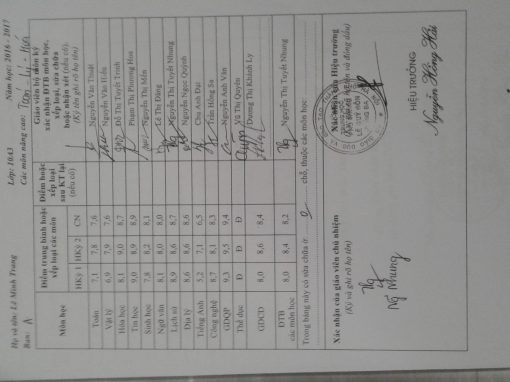 Họ và tên: Lê Minh Trang Lớp: 10A3 Năm học: 2016 - 2017
Ban: A Các môn nâng cao: Toán, Lý, Hoá
Môn học
Điểm trung bình hoặc xếp loại các môn
HKỳ 1 HKỳ 2 CN
Điểm hoặc xếp loại sau KT lại (nếu có)
Giáo viên bộ môn ký xác nhận ĐTB môn học, xếp loại, sửa chữa hoặc nhận xét (nếu có).
(Ký tên ghi rõ họ tên)
Toán 7,1 7,8 7,6 Nguyễn Văn Thuất
Vật lý 6,9 7,9 7,6 Nguyễn Văn Hiếu
Hóa học 8,1 9,0 8,7 Đỗ Thị Tuyết Trinh
Tin học 9,0 8,9 8,9 Phạm Thị Phương Hoa
Sinh học 7,8 8,2 8,1 Nguyễn Thị Mến
Ngữ văn 8,1 8,0 8,0 Lê Thị Đông
Lịch sử 8,9 8,6 8,7 Nguyễn Thị Tuyết Nhung
Địa lý 8,6 8,6 8,6 Nguyễn Ngọc Quỳnh
Tiếng Anh 5,2 7,1 6,5 Chu Anh Đại
Công nghệ 8,7 8,1 8,3 Trần Hồng Sa
GDQP 9,3 9,5 9,4 Nguyễn Anh Văn
Thể dục Đ Đ Đ Vũ Thị Quyên
GDCD 8,0 8,6 8,4 Dương Thị Khánh Ly
ĐTB các môn học 8,0 8,4 8,2 Nguyễn Thị Tuyết Nhung
Trong bảng này có sửa chữa ở: chỗ, thuộc các môn học
Xác nhận của giáo viên chủ nhiệm
(Ký và ghi rõ họ tên)
Nhung
Xác nhận của Hiệu trưởng
HIỆU TRƯỞNG
Nguyễn Hồng Hải